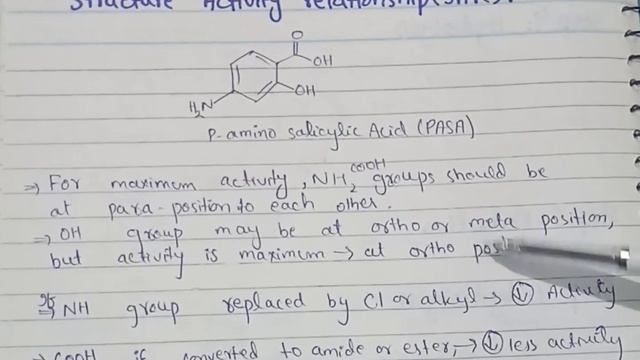 Structure Activity relationship(SAR):
O
OH
OH
H₂N
P-amino salicylic Acid (PASA)
⇒ For maximum activity, NH₂ COOH groups should be
at para-position to each other.
⇒ OH group may be at ortho or meta position,
but activity is maximum → at ortho posi
If NH group replaced by Cl or alkyl → ↓ Activity
⇒ COOH if converted to amide or ester, → ↓ less activity